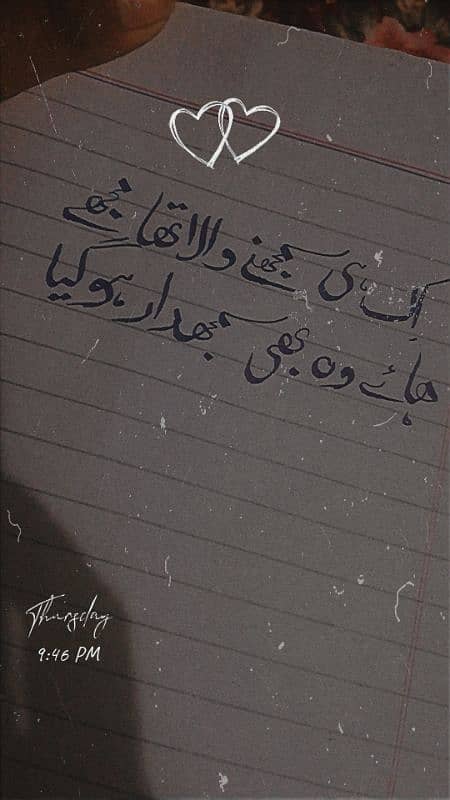 اِک ہی سمجھنے والا تھا مجھے
ہائے وہ بھی سمجھدار ہو گیا
Thursday
9:46 PM